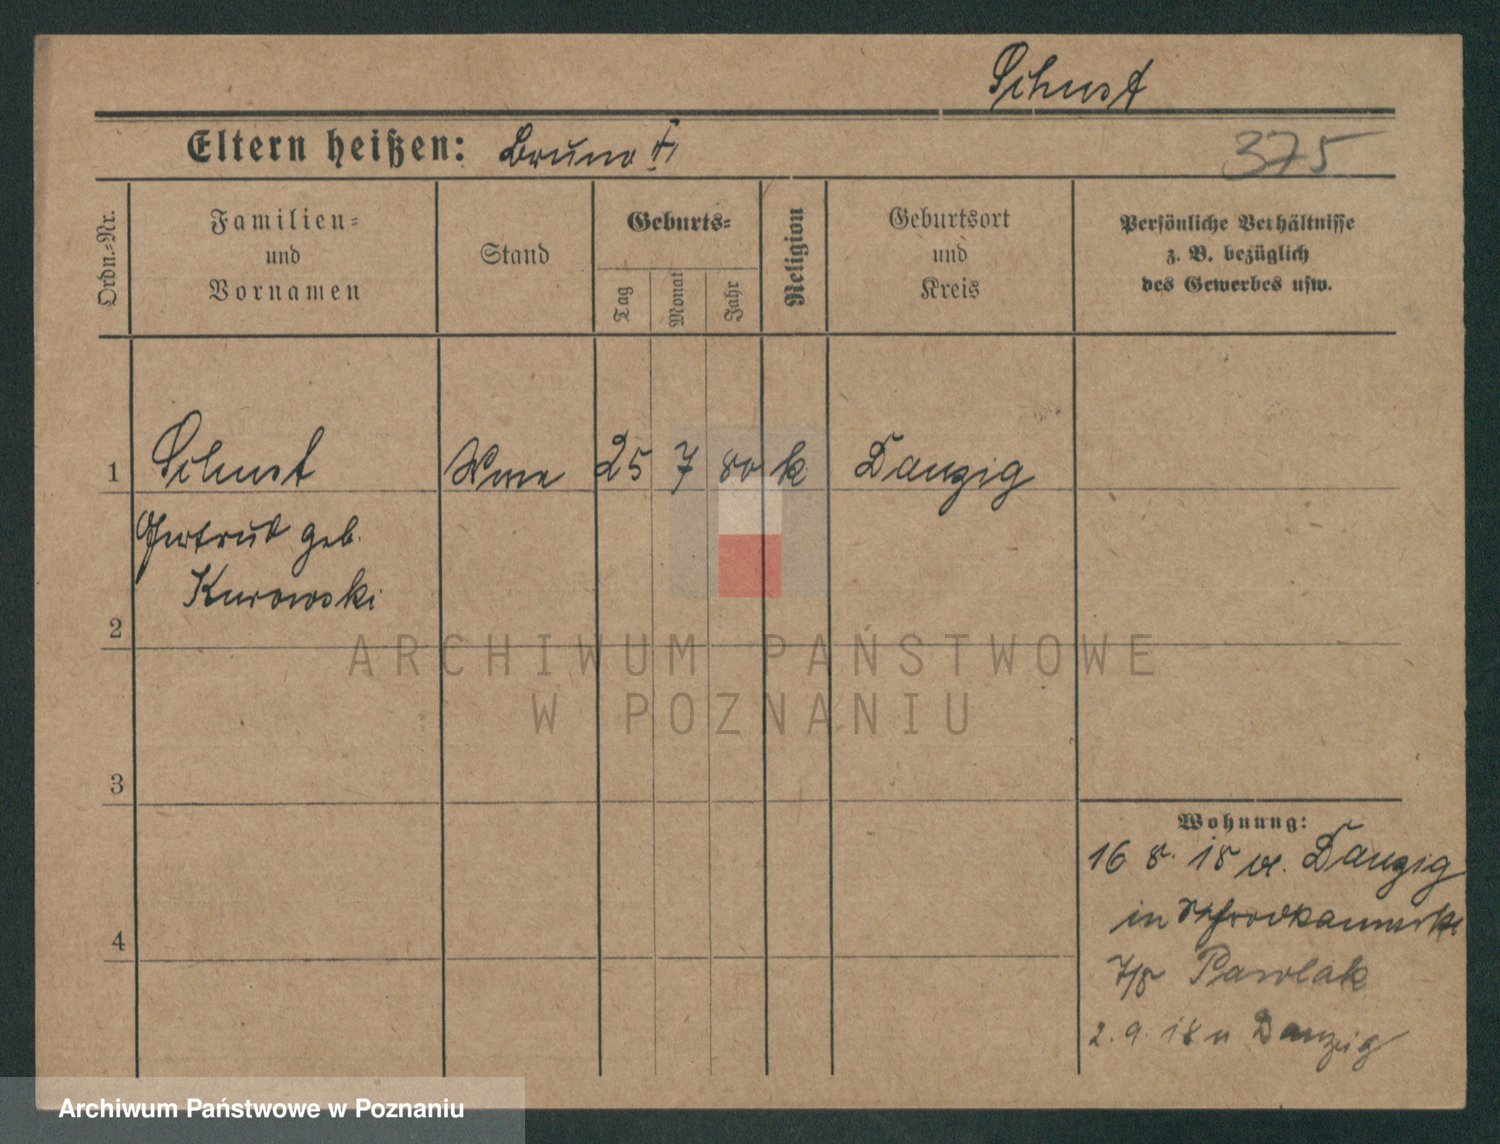 Schust
Eltern heißen: Bruno †
375
Ordn.-Nr.
Familien-
und
Vornamen
Stand
Geburts-
Tag
Monat
Jahr
Religion
Geburtsort
und
Kreis
Persönliche Verhältnisse
z. B. bezüglich
des Gewerbes usw.
1
Schust
Wwe
25
7
80
k
Danzig
Gertrud geb.
Kurowski
2
3
4
Wohnung:
16 8. 18 v. Danzig
in
7/8 Pawlak
2. 9. 18 n Danzig
ARCHIWUM PAŃSTWOWE
W POZNANIU
Archiwum Państwowe w Poznaniu